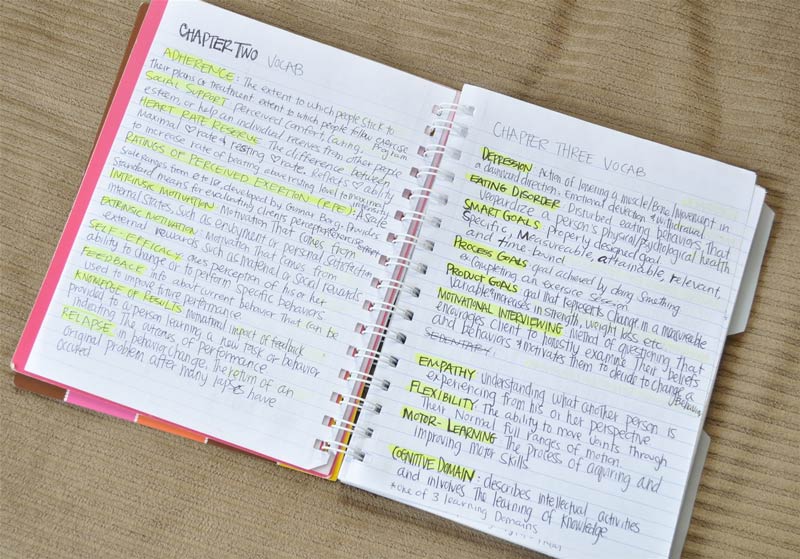 CHAPTER TWO VOCAB
ADHERENCE: The extent to which people stick to
their plans or treatment extent to which people follow exercise
SOCIAL SUPPORT Perceived comfort, caring, Program
esteem, or help an individual receives from other people
HEART RATE RESERVE The difference between
maximal ♡ rate & resting ♡ rate. Reflects ♡ ability
to increase rate of beating above resting level to maximal
RATINGS OF PERCEIVED EXERTION (RPE): A scale
scale ranges from 6 to 18, developed by Borg. Provides
standard means for evaluating clients perception
INTRINSIC MOTIVATION Motivation that comes from
internal states, such as enjoyment or personal satisfaction
EXTRINSIC MOTIVATION Motivation that comes from
external rewards such as material or social rewards
SELF-EFFICACY ones perception of his or her
ability to change or to perform specific behaviors
FEEDBACK info about current behavior that can be
used to improve future performance
KNOWLEDGE OF RESULTS motivational impact of feedback
provided to a person learning a new task or behavior
indicating the outcomes of performance
RELAPSE in behavior change, the return of an
original problem after many lapses have
occured
CHAPTER THREE VOCAB
DEPRESSION Action of lowering a muscle/Bone/movement in
a downward direction. Emotional dejection & withdrawal
EATING DISORDER Disturbed eating behaviors that
jeopardize a person's physical/psychological health
SMART GOALS properly designed goal
Specific, Measurable, attainable, relevant,
and time bound
PROCESS GOALS goal achieved by doing something
ex completing an exercise session
PRODUCT GOALS goal that represents change in a measureable
variable increases in strength, weight loss etc.
MOTIVATIONAL INTERVIEWING method of questioning that
encourages client to honestly examine their beliefs
and behaviors & motivates them to decide to change a
behavior
SEDENTARY
EMPATHY understanding what another person is
experiencing from his or her perspective
FLEXIBILITY The ability to move joints through
their normal full ranges of motion.
MOTOR-LEARNING The process of acquiring and
improving motor skills
COGNITIVE DOMAIN: describes intellectual activities
and inlvolves the learning of knowledge
*one of 3 learning Domains